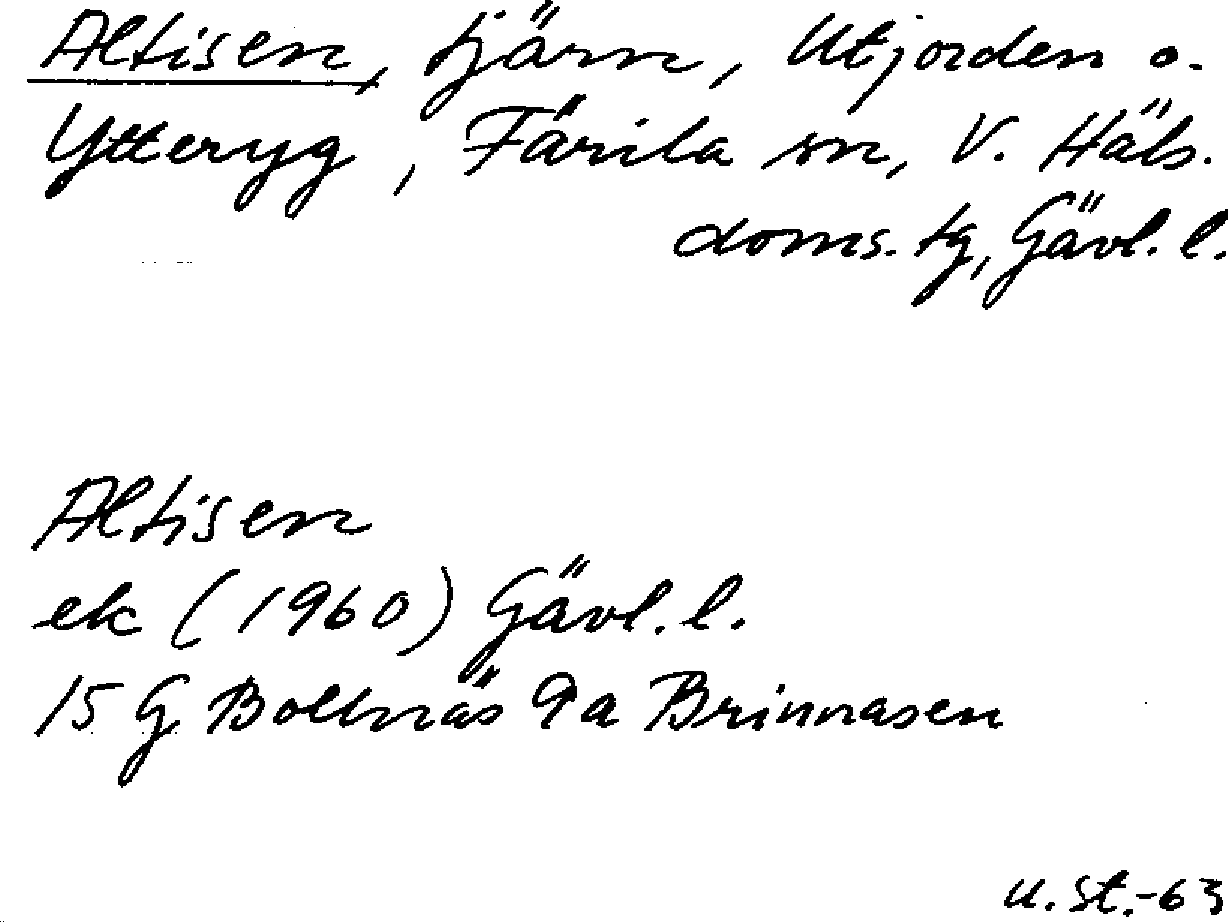 Altisen, tjärn, Utjorden o.
Ytteryg, Färila sn, V. Häls.
doms. tg, Gävl. l.
Altisen
ek (1960) Gävl. l.
15 G Bollnäs 9a Brinnasen
u. st.-63